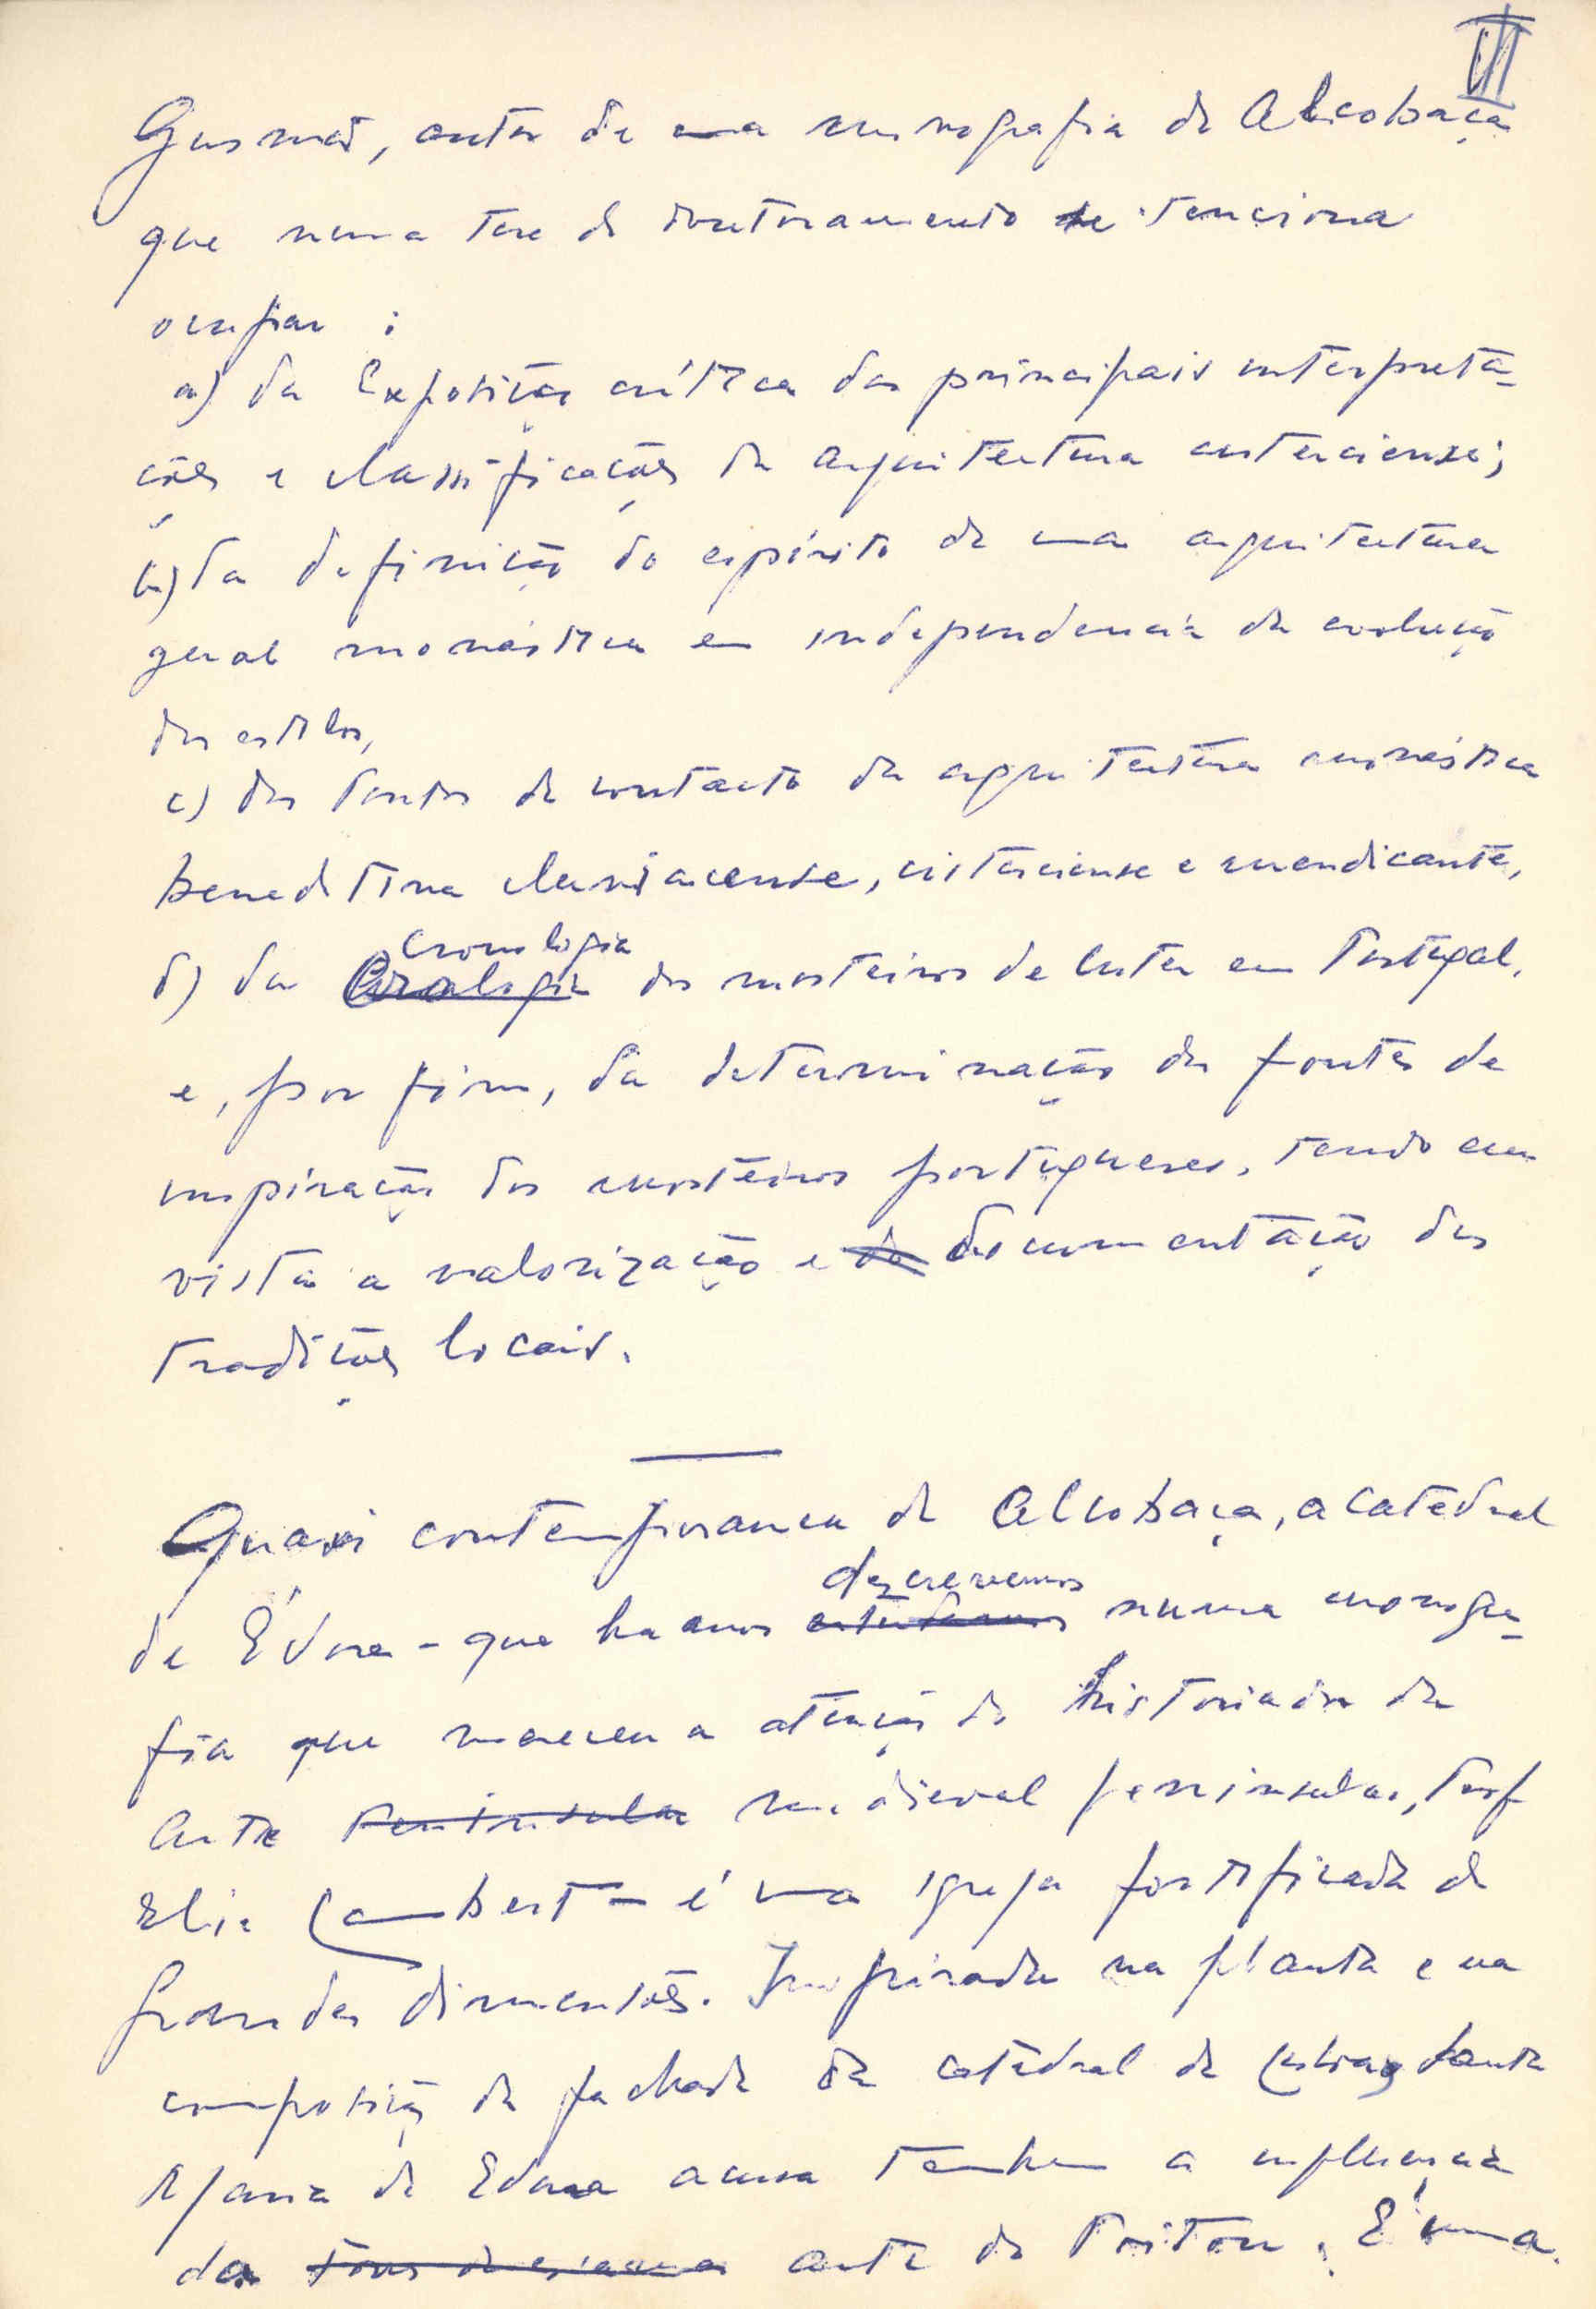 III
Gusmão, autor de uma monografia de Alcobaça
que numa tese de doutoramento se tenciona
ocupar :
a) da Exposição crítica das principais interpreta-
ções e classificações da arquitectura cisterciense;
b) da definição do espírito de uma arquitectura
geral monástica em independencia da evolução
dos estilos,
c) dos pontos de contacto da arquitectura monástica
benedictina cluniacense, cisterciense e mendicante,
d) da cronologia dos mosteiros de Cister em Portugal,
e, por fim, da determinação das fontes de
inspiração dos mosteiros portugueses, tendo em
vista a valorização e do documentação das
tradições locais.
Quasi contemporanea de Alcobaça, a catedral
de Évora - que ha anos descrevemos numa monogra-
fia que mereceu a atenção do historiador da
Arte peninsular medieval peninsular, Prof
Elie Lambert - é uma igreja fortificada de
grandes dimensões. Inspirada na planta e na
composição da fachada da catedral de Lisboa, Santa
Maria de Evora acusa tambem a influencia
da arte do Poitou. É uma